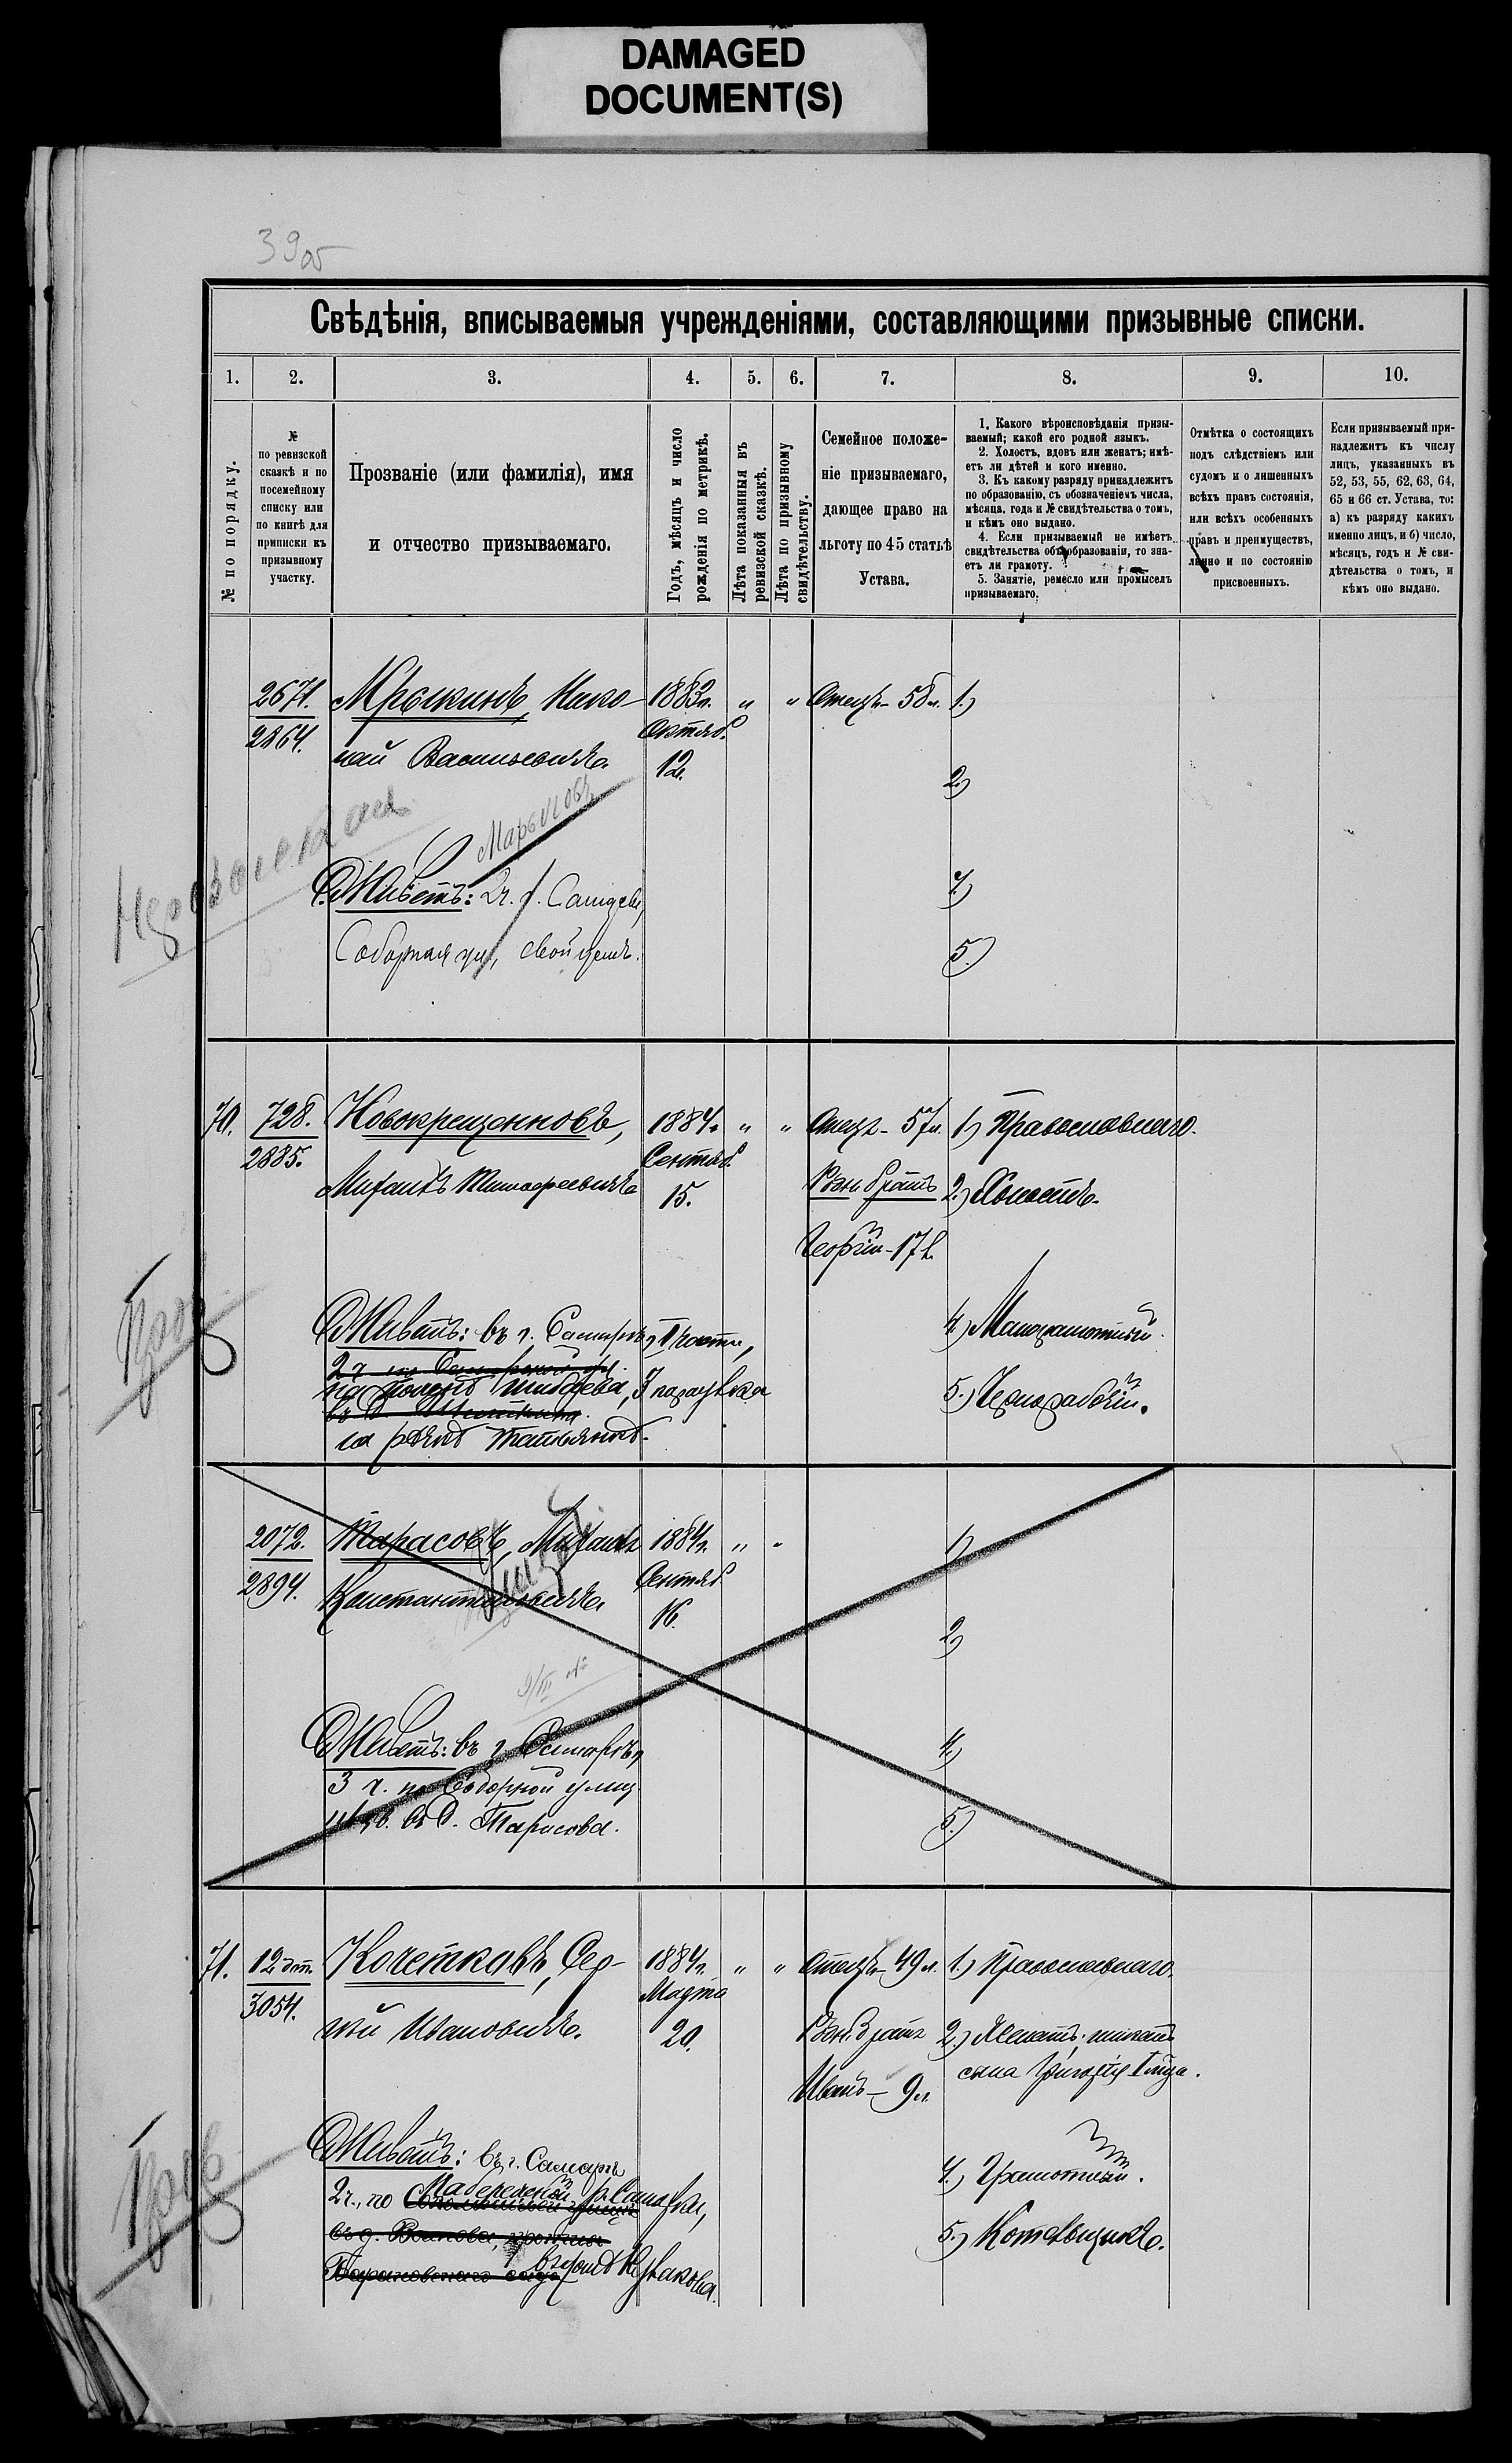 DAMAGED
DOCUMENT(S)
39об
Свѣдѣнія, вписываемыя учрежденіями, составляющими призывные списки.
1. 2. 3. 4. 5. 6. 7. 8. 9. 10.
№ по порядку.
№
по ревизской
сказкѣ и по
посемейному
списку или
по книгѣ для
приписки къ
призывному
участку.
Прозваніе (или фамилія), имя
и отчество призываемаго.
Годъ, мѣсяцъ и число
рожденія по метрикѣ.
Лѣта показанныя въ
ревизской сказкѣ.
Лѣта по призывному
свидѣтельству.
Семейное положе-
ніе призываемаго,
дающее право на
льготу по 45 статьѣ
Устава.
1. Какого вѣроисповѣданія призы-
ваемый; какой его родной языкъ.
2. Холостъ, вдовъ или женатъ; имѣ-
етъ ли дѣтей и кого именно.
3. Къ какому разряду принадлежитъ
по образованію, съ обозначеніемъ числа,
мѣсяца, года и № свидѣтельства о томъ,
и кѣмъ оно выдано.
4. Если призываемый не имѣетъ
свидѣтельства объ образованіи, то зна-
етъ ли грамоту.
5. Занятіе, ремесло или промыселъ
призываемаго.
Отмѣтка о состоящихъ
подъ слѣдствіемъ или
судомъ и о лишенныхъ
всѣхъ правъ состоянія,
или всѣхъ особенныхъ
правъ и преимуществъ,
лично и по состоянію
присвоенныхъ.
Если призываемый при-
надлежитъ къ числу
лицъ, указанныхъ въ
52, 53, 55, 62, 63, 64,
65 и 66 ст. Устава, то:
а) къ разряду какихъ
именно лицъ, и б) число,
мѣсяцъ, годъ и № сви-
дѣтельства о томъ, и
кѣмъ оно выдано.
2671. Мрыкинъ, Нико- 1883г. " " Отецъ - 58 л. 1.)
2864. лай Васильевичъ. Октяб.
12.
2.)
Живетъ: 2 ч. г. Самара, 4.)
Соборная ул., свой домъ. 5.)
70. 728. Новокрещенновъ, 1884г. " " Отецъ - 57 л. 1.) Православнаго.
2885. Михаилъ Тимофеевичъ Сентяб.
15. Родн. братъ 2.) Холостъ.
Георгій - 17 л.
Живетъ: въ г. Самарѣ, II части, 4.) Малограмотный.
2 ч. по Самарской ул.
на Полевой Шибаева, 5.) Чернорабочій.
на рѣкѣ Татьянкѣ.
2072. Тарасовъ, Михаилъ 1884г. " " 1)
2894. Константиновичъ Сентяб.
16.
2.)
9/III
Живетъ: въ г. Самарѣ, 4.)
3 ч. по Соборной улиц.
въ д. Тарасова. 5.)
71. 12 доп. Кочетковъ, Сер- 1884г. " " Отецъ - 49 л. 1.) Православнаго.
3054. гѣй Ивановичъ. Марта
20. Родн. братъ 2.) Женатъ; имѣетъ
Иванъ - 9 л. сына Григорія 1 года.
Живетъ: въ г. Самарѣ
2 ч., по Набережной р. Самарки, 4.) Грамотный.
5.) Котельщикъ.